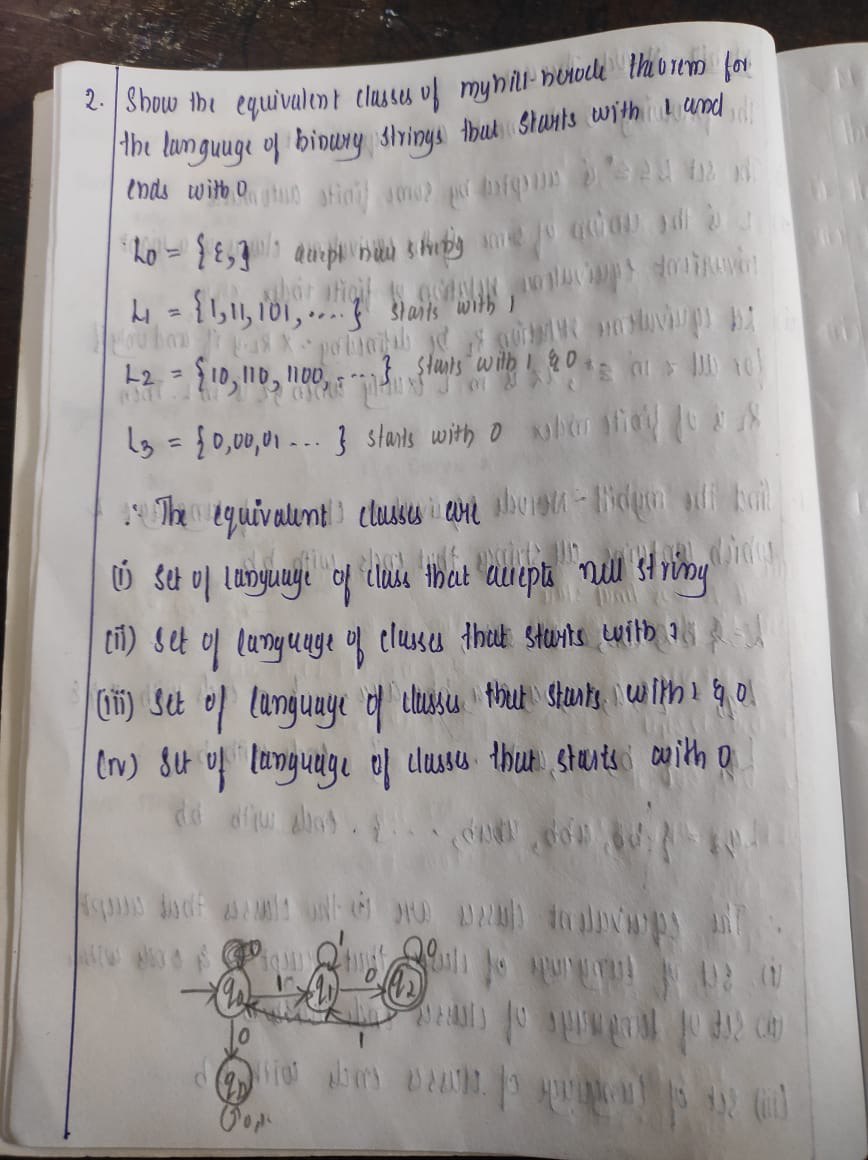 2. Show the equivalent classes of myhill-nerode theorem for
the language of binary strings that starts with 1 and
ends with 0
L0 = {ε,} accept null string
L1 = {1,11,101,....} starts with 1
L2 = {10,110,1100,....} starts with 1 & 0
L3 = {0,00,01 ...} starts with 0
∴ The equivalent classes are
(i) Set of language of class that accepts null string
(ii) Set of language of classes that starts with 1
(iii) Set of language of classes that starts with 1 & 0
(iv) Set of language of classes that starts with 0
1 0
q0 1 q1 0 q2
0 1
qD
0,1